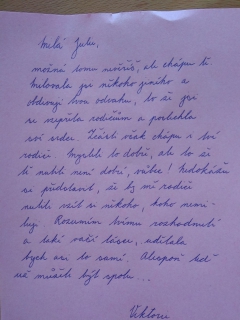 Milá Julie,
možná tomu nevěříš, ale chápu tě
Milovala jsi někoho jiného a
obdivuji tvou odvahu, to že jsi
se vzepřela rodičům a poslechla
své srdce. Zčásti však chápu i tvé
rodiče. Mysleli to dobře, ale to že
tě nutili není dobré, vůbec! Nedokážu
si představit, že by mě rodiče
nutili vzít si někoho, koho nemi-
luji. Rozumím tvému rozhodnutí
a také vaší lásce, udělala
bych asi to samé. Alespoň teď
už můžete být spolu...